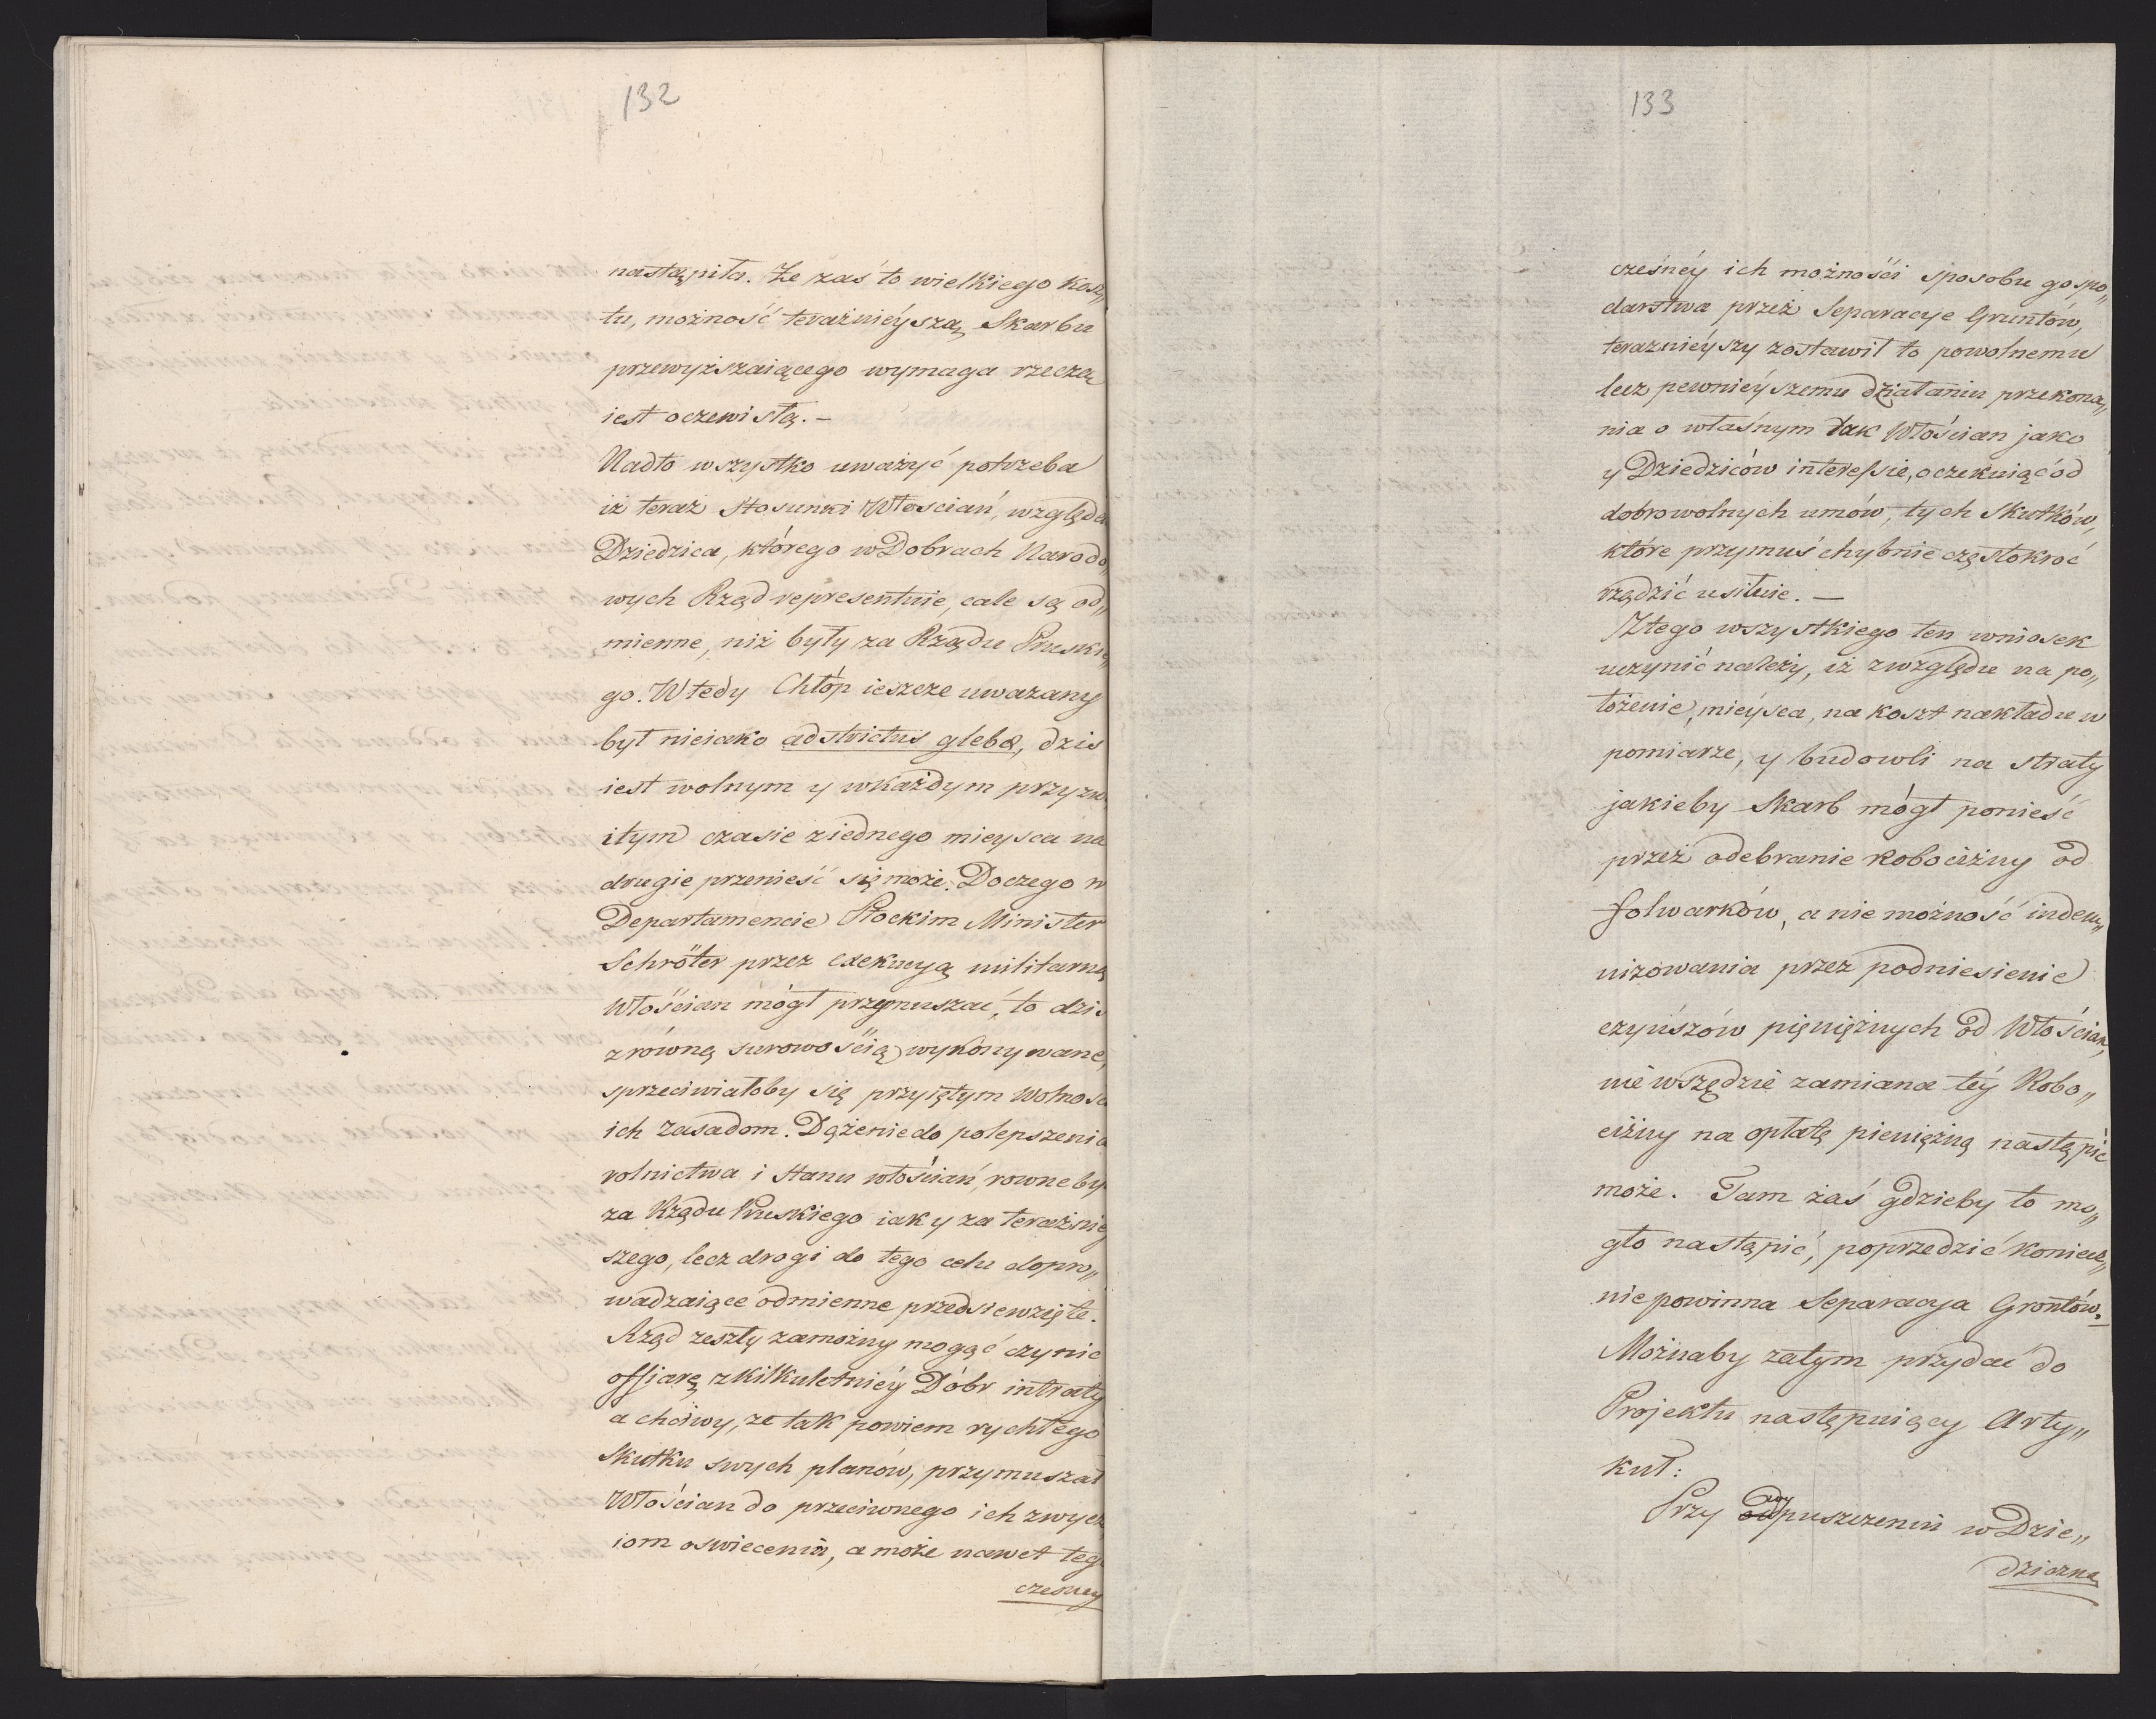 132
nastąpiła. Że zaś to wielkiego kosz„
tu, możność teraźnieyszą Skarbu
przewyższaiącego wymaga rzeczą
iest oczewistą. –
Nadto wszystko uważyć potrzeba
iż teraz stosunki Włościań, względem
Dziedzica, którego w Dobrach Narodo„
wych Rząd representuie, cale są od„
mienne, niż były za Rządu Pruskie„
go. Wtedy Chłop ieszcze uwazany
był nieiako adstrictus glebæ, dzis
iest wolnym y w każdym przyzwo
itym czasie z iednego mieysca na
drugie przenieść się może. Do czego w
Departamencie Płockim Minister
Schröter przez exekucyą militarną
Włościan mógł przymuszać, to dzis
z równą surowością wykonywane,
sprzeciwiałoby się przyiętym wolnosci
ich zasadom. Dążenie do polepszenia
rolnictwa i stanu włościań, rowne by
za Rządu Pruskiego iak y za teraźniey
szego, lecz drogi do tego celu dopro„
wadzaiące odmienne przedsiewzięte.
Rząd zeszły zamożny mogąć czynic
offiarę z kilkuletniéy Dóbr intraty
a chciwy, ze tak powiem rychłego
Skutku swych planów, przymuszał
Włościan do przeciwnego ich zwycza
iom oswiecenia, a może nawet tego
czesney
133
cześnéy ich możnośći sposobu gospo„
darstwa przez Separacye Gruntów,
teraznieyszy zostawił to powolnemu
lecz pewniéyszemu działaniu przekona„
nia o właśnym tak Włościan jako
y Dziedziców interessie, oczekuiąć od
dobrowolnych umów, tych skutków,
które przymuś chybnie częstokroć
rządzić usiłuie. –
Z tego wszystkiego ten wniosek
uczynić należy, iż z względu na po„
łożenie mieysca, na koszt nakładu w
pomiarze, y budowli na straty
jakieby Skarb mógł ponieść
przez odebranie Robocizny od
folwarków, a nie możność indem„
nizowania przez podniesienie
czynszów pięniężnych od Włościan,
nie wszędzie zamiana téy Robo„
cizny na opłatę pieniężną nastąpić
może. Tam zaś gdzieby to mo„
gło nastąpić, poprzedzić koniecz„
nie powinna Separacya Grontów.
Możnaby zatym przydać do
Projektu następuiący Arty„
kuł:
Przy wypuszczeniu w Dzie„
dziczną